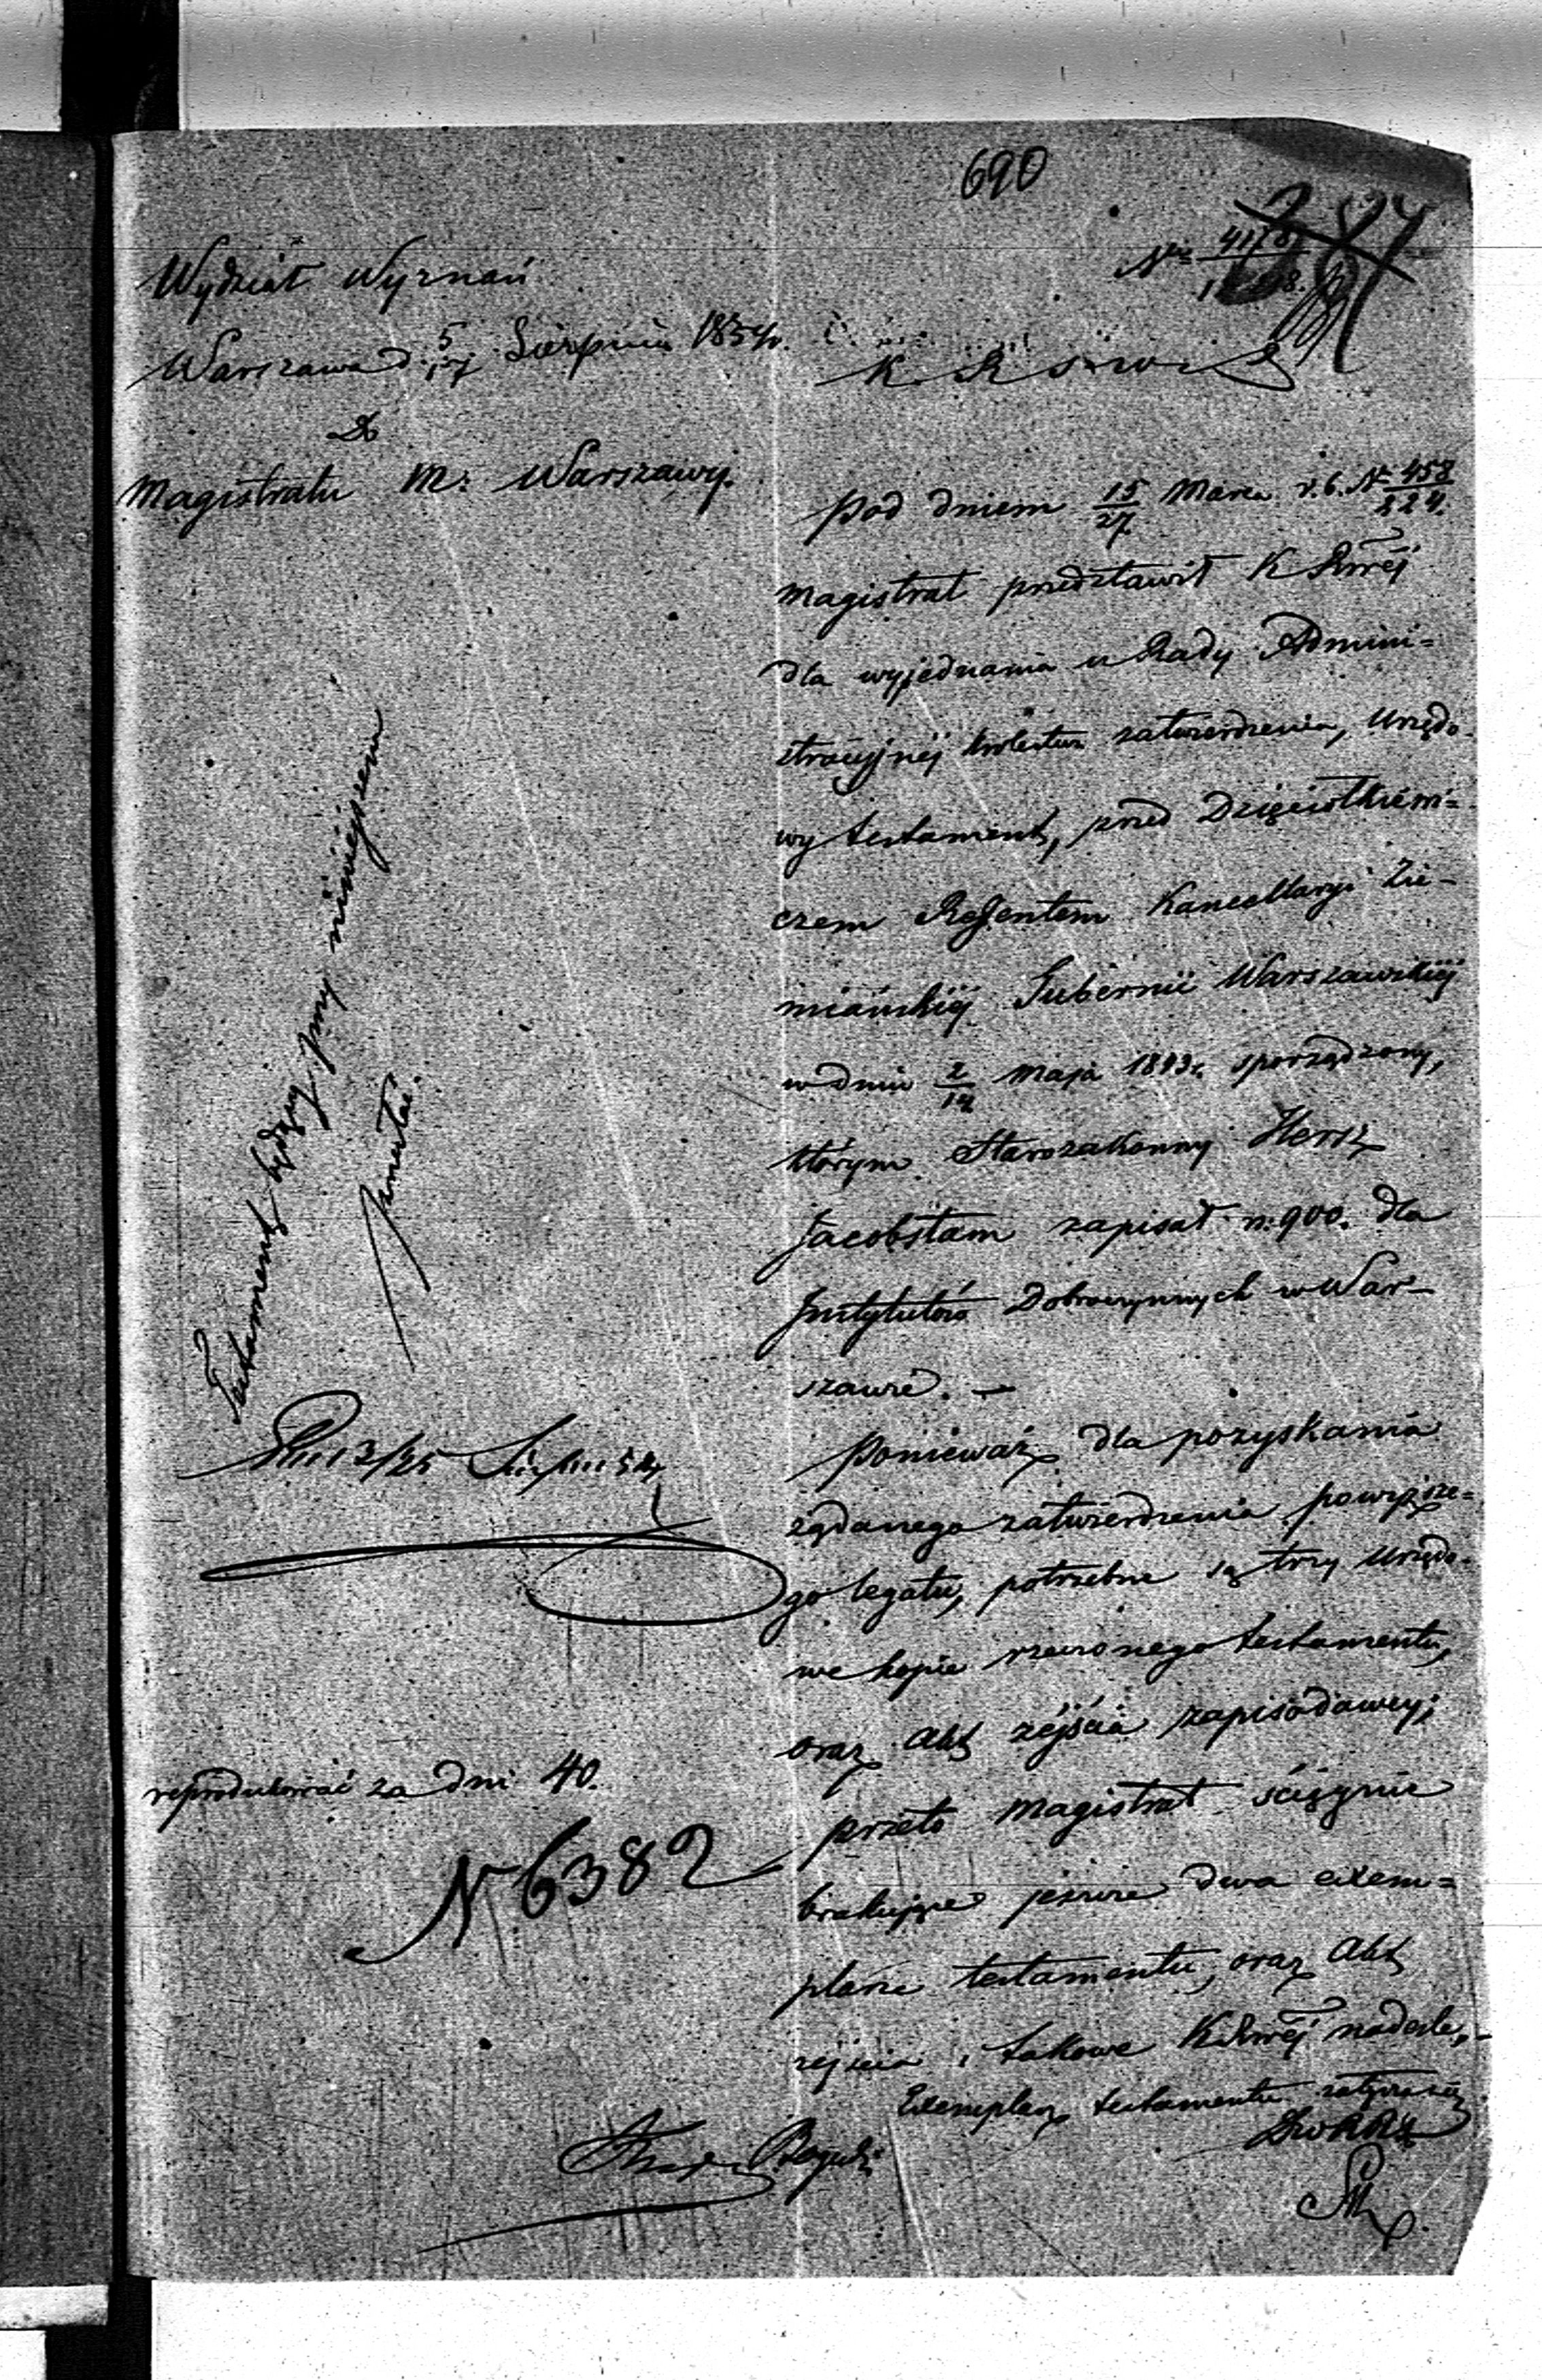 690
Wydział Wyznań
Nr 4178
Warszawa d. 5/17 Sierpnia 1854 r.
Do
Magistratu M: Warszawy.
Pod dniem 15/27 Marca r. b. Nr 458/224.
Magistrat przedstawił K Rwéj
dla wyjednania u Rady Admini=
stracyjnéj Królestwa zatwierdzenia, Urzędo-
wy testament, przed Dzięciołkiewi=
czem Rejentem Kancellaryi Zie-
miańskiéj Gubernii Warszawskiéj
w dniu 2/14 Maja 1843 r. sporządzony,
którym Starozakonny Hersz
Jacobstam zapisał rs: 900. dla
Instytutów Dobroczynnych w War-
szawie. —
Ponieważ dla pozyskania
żądanego zatwierdzenia powyższe=
go legatu, potrzebne są trzy Urzędo-
we kopie rzeczonego testamentu,
oraz Akt zéjścia zapisodawcy;
przeto Magistrat ściągnie
brakujące jeszcze dwa exem=
plarze testamentu, oraz Akt
zejścia i takowe K Rwéj nadeśle,-
Exemplarz testamentu załącza się
Testament będący przy niniejszem
13/25
reprodukować za dni 40.
N 6382